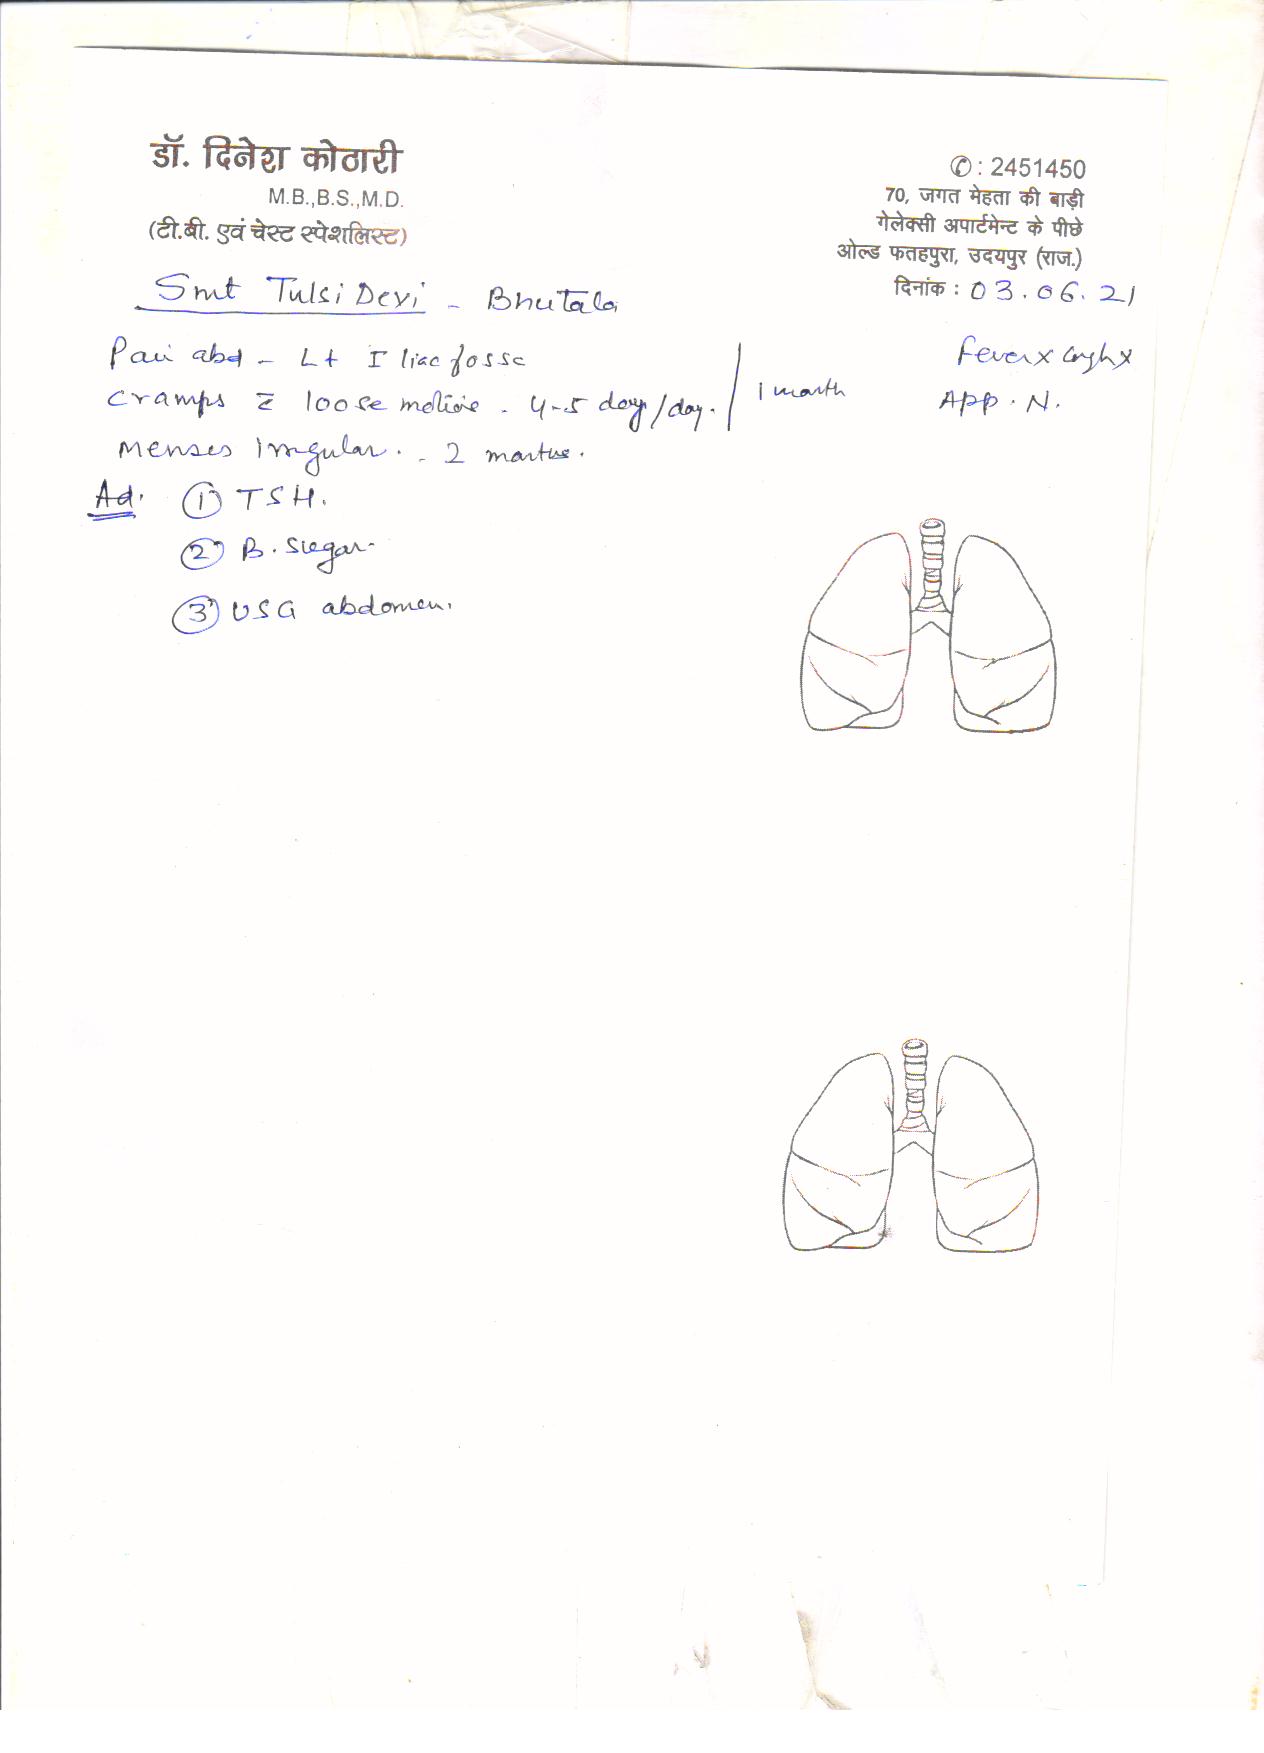 डॉ. दिनेश कोठारी
M.B.,B.S.,M.D.
(टी.बी. एवं चेस्ट स्पेशलिस्ट)
✆ : 2451450
70, जगत मेहता की बाड़ी
गेलेक्सी अपार्टमेन्ट के पीछे
ओल्ड फतहपुरा, उदयपुर (राज.)
दिनांक : 03.06.21
Smt Tulsi Devi - Bhutala
Pain abd - Lt Iliac fossa
Cramps c̄ loose motions - 4-5 /day.
1 month
Fever x Cough x
App. N.
Menses Irregular. - 2 months.
Ad. ① TSH.
② B. Sugar.
③ USG abdomen.